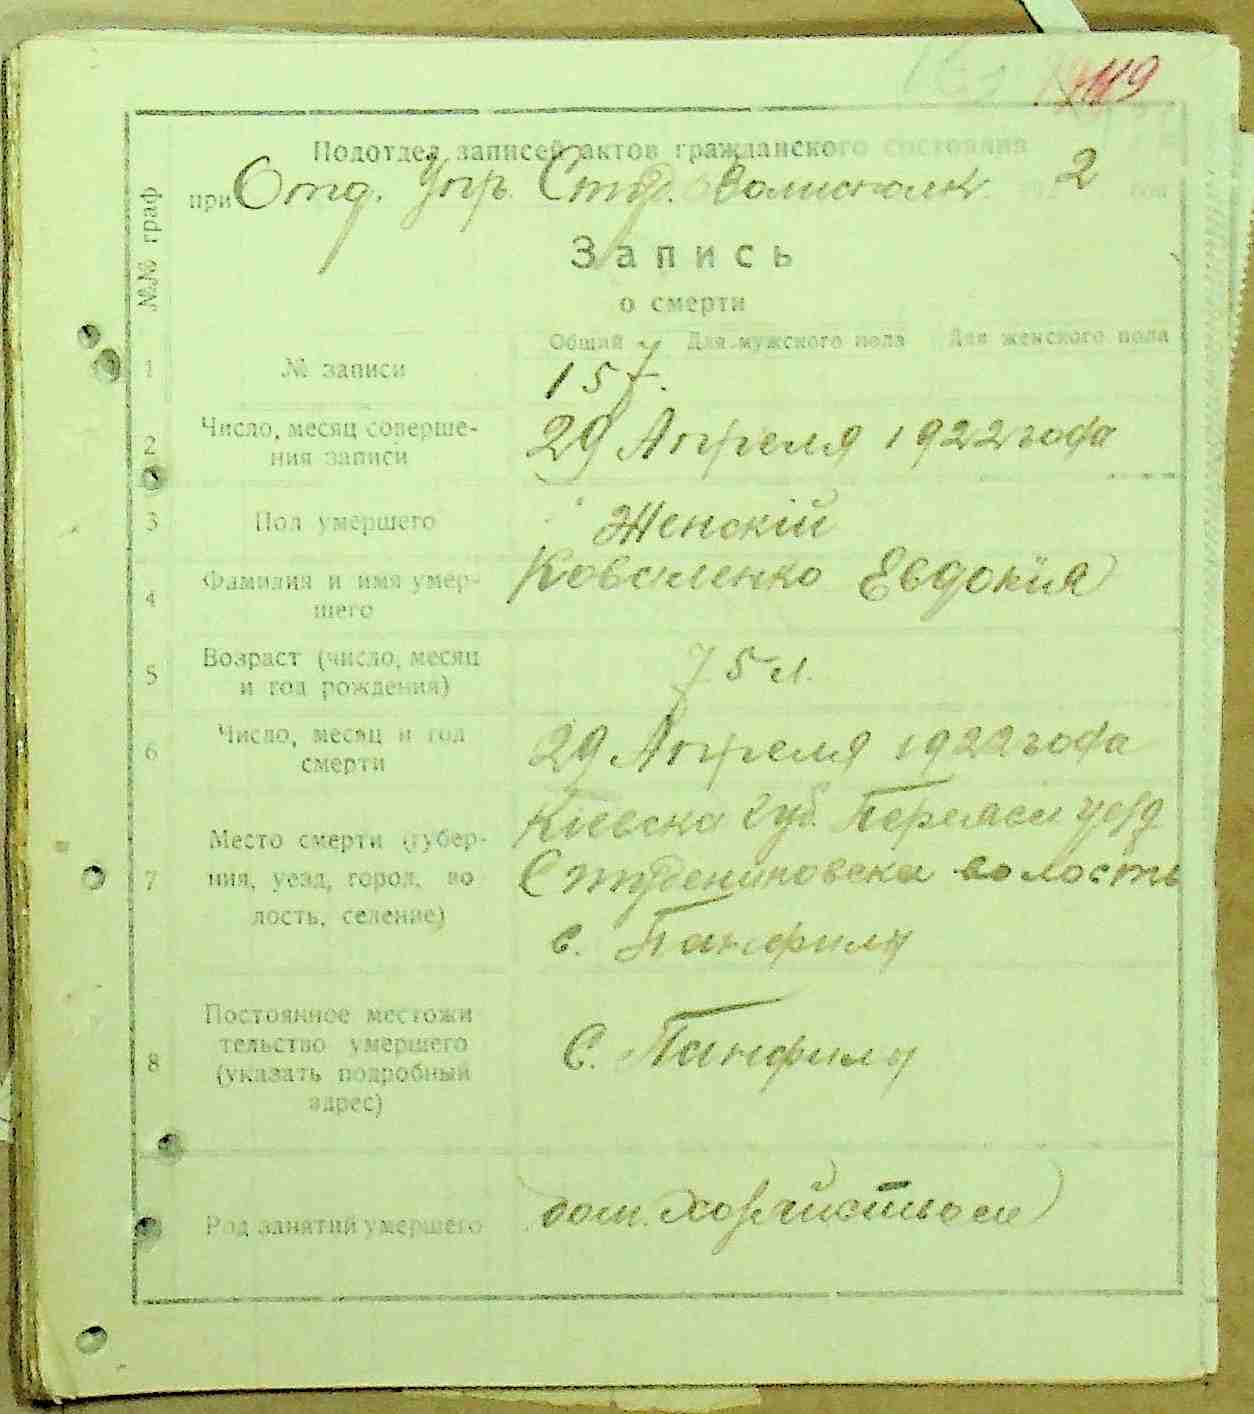 119
Подотдел записей актов гражданского состояния
при Отд. Упр. Студ. Волисполк. 2
№№ граф
Запись
о смерти
Общий Для мужского пола Для женского пола
1 № записи 157.
2 Число, месяц соверше-
ния записи 29 Апреля 1922 года
3 Пол умершего Женскій
4 Фамилия и имя умер-
шего Коваленко Евдокія
5 Возраст (число, месяц
и год рождения) 75 л.
6 Число, месяц и год
смерти 29 Апреля 1922 года
7 Место смерти (губер-
ния, уезд, город, во
лость, селение)
Киевска губ. Переясл уезд
Студениковска волость
с. Панфилы
8 Постоянное местожи
тельство умершего
(указать подробный
адрес)
с. Панфилы
Род занятий умершего дом. хозяйством